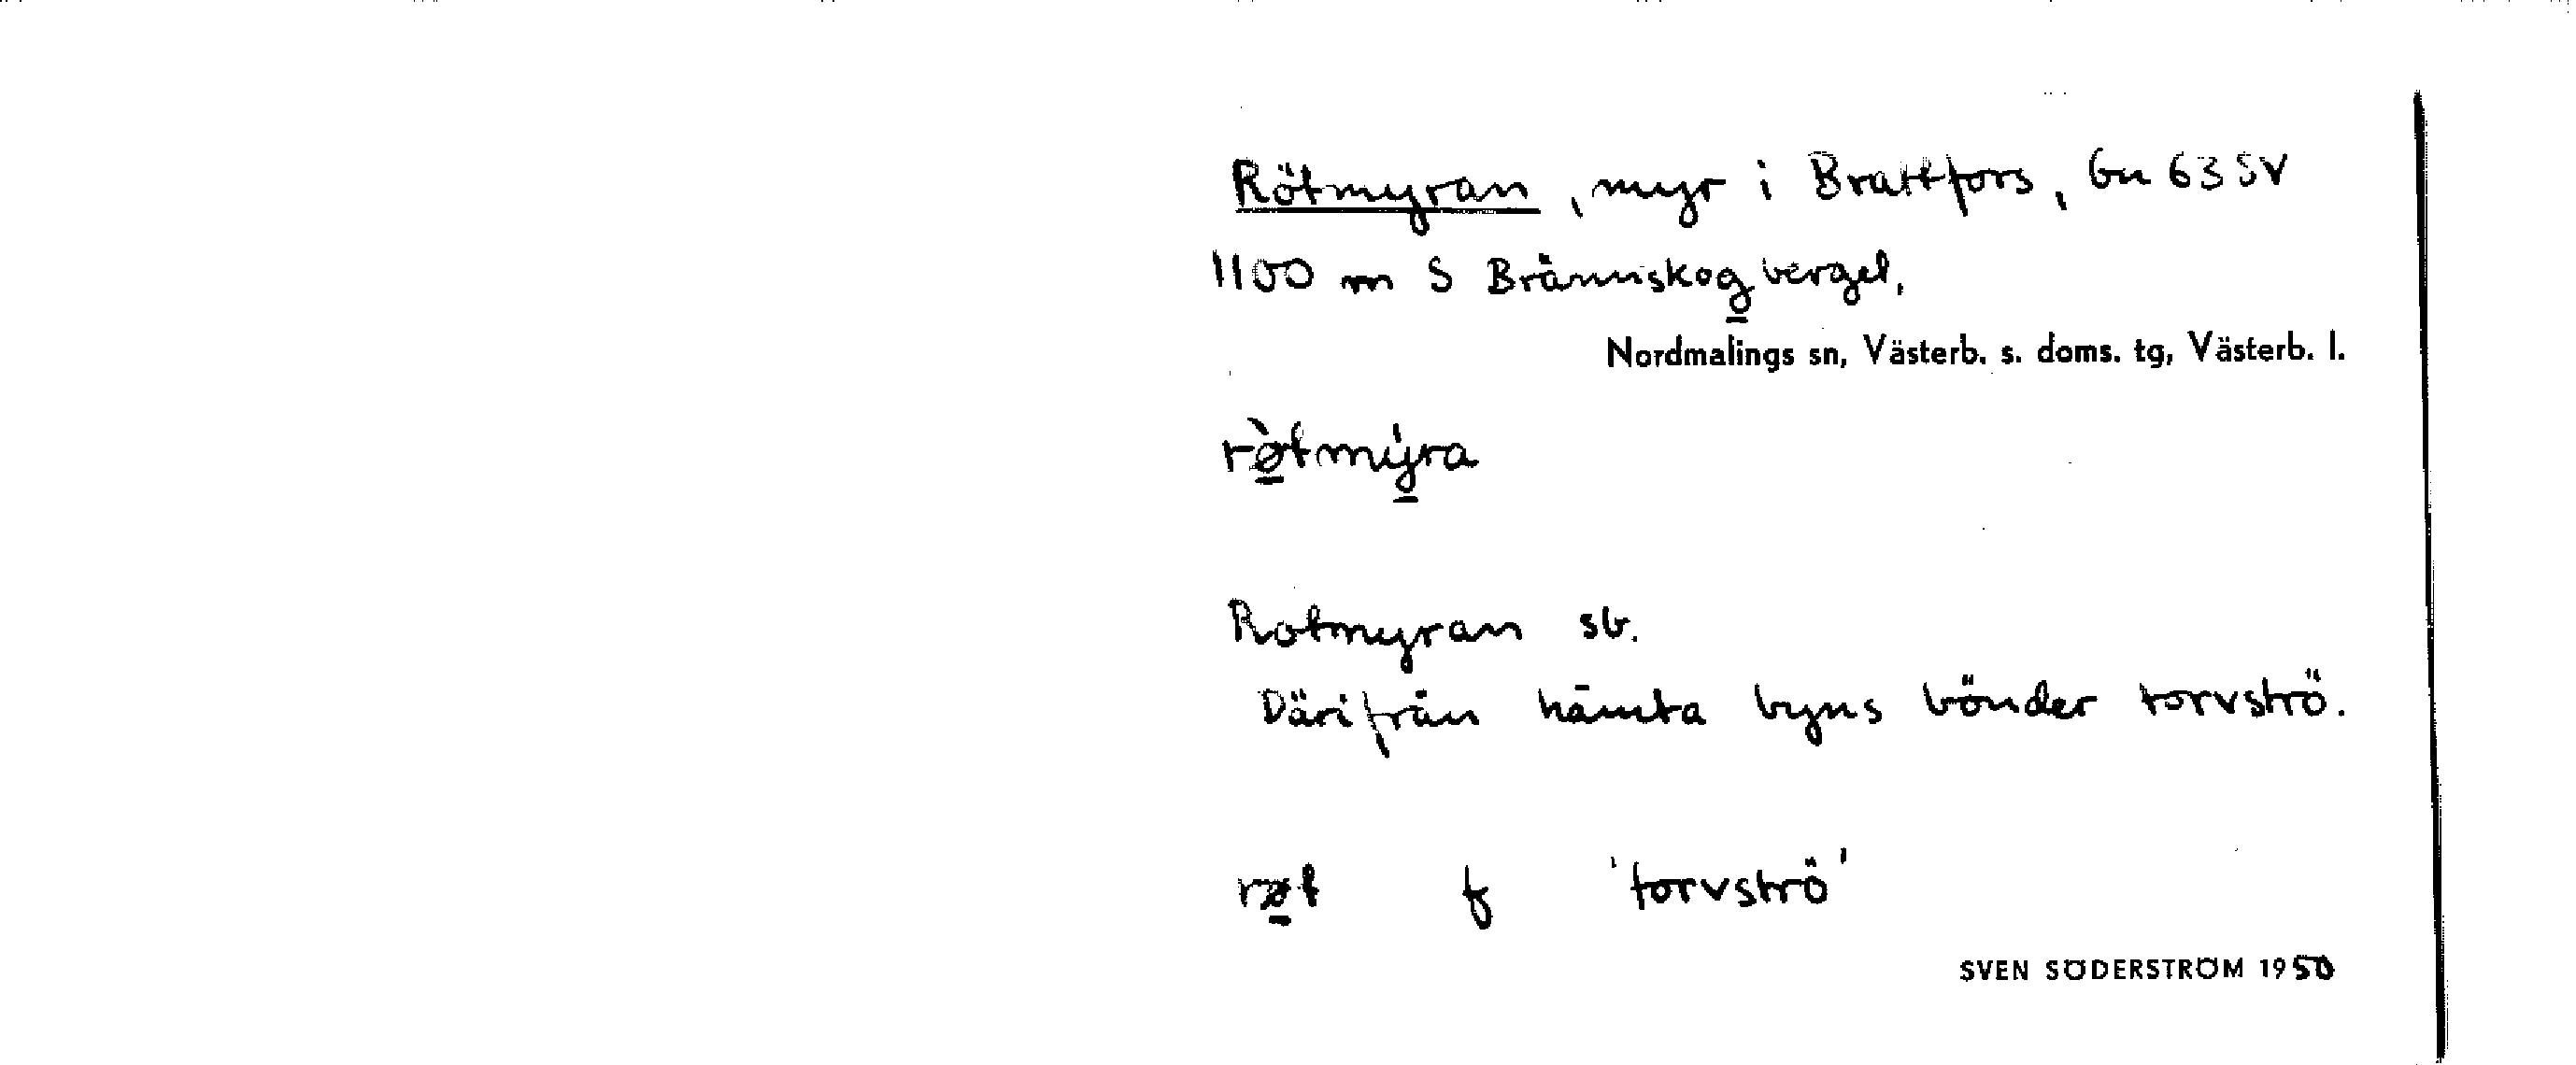 Rötmyran, myr i Brattfors, Gn 63 SV
1100 m S Brännskogberget,
Nordmalings sn, Västerb. s. doms. tg, Västerb. l.
rø̀tmýra
Rotmyran sb.
Därifrån hämta byns bönder torvströ.
røt f 'torvströ'
SVEN SÖDERSTRÖM 1950